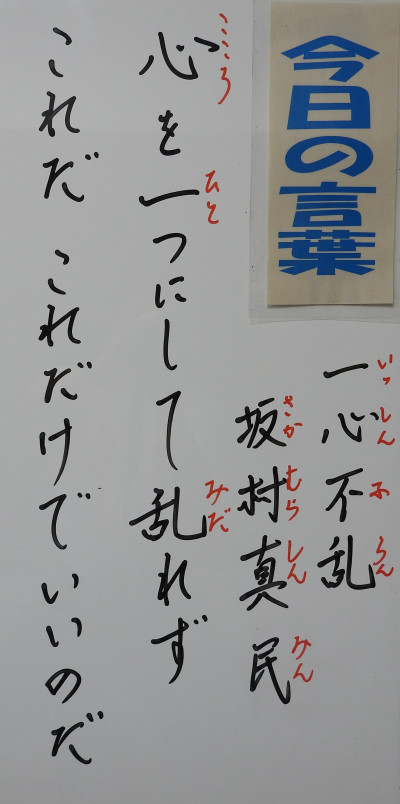 今日の言葉
一心不乱
いっしんふらん
坂村真民
さかむらしんみん
心を一つにして乱れず
こころ ひと みだ
これだ これだけでいいのだ